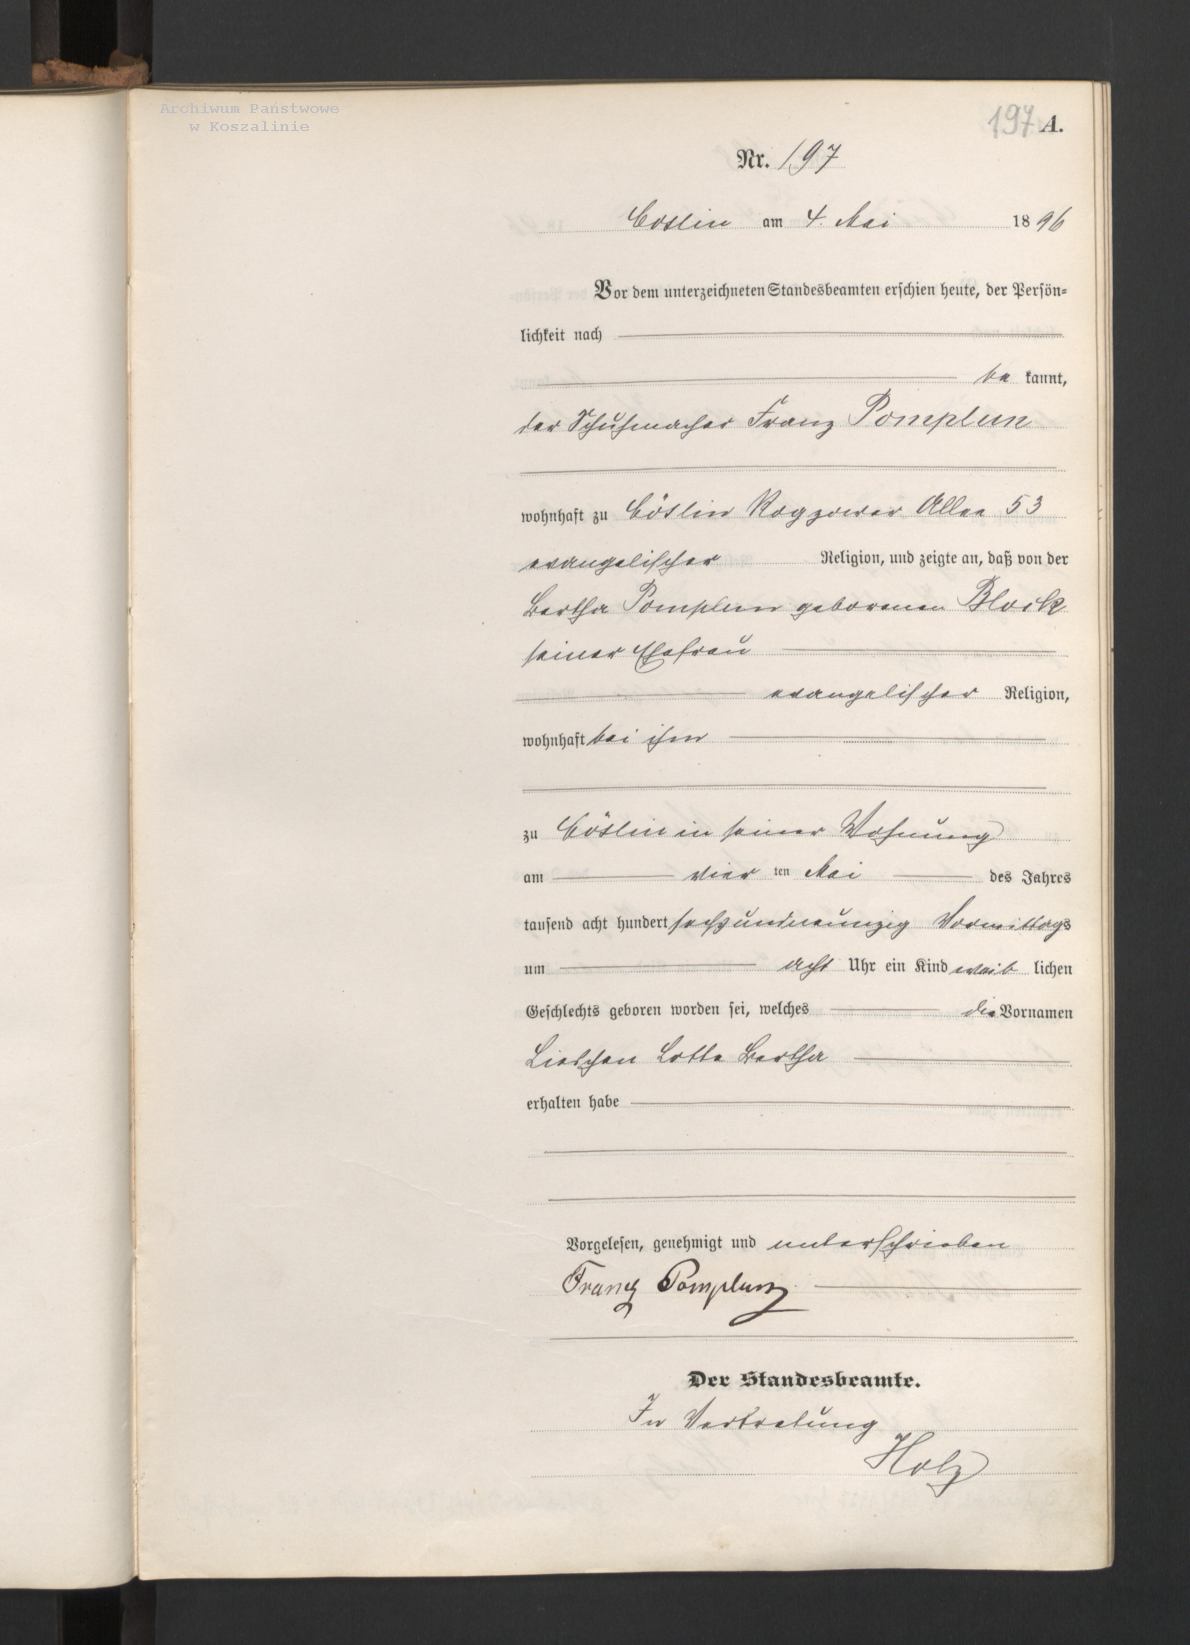 Archiwum Państwowe
w Koszalinie
197 A.
Nr. 197
Coslin am 4. Mai 1896
Vor dem unterzeichneten Standesbeamten erschien heute, der Persön-
lichkeit nach
be kannt,
der Schuhmacher Franz Pomplun
wohnhaft zu Cöslin Rogzower Allee 53
evangelischer Religion, und zeigte an, daß von der
Bertha Pomplun geborenen Block
seiner Ehefrau
evangelischer Religion,
wohnhaft bei ihm
zu Cöslin in seiner Wohnung
am vier ten Mai des Jahres
tausend acht hundert sechsundneunzig Vormittags
um acht Uhr ein Kind weib lichen
Geschlechts geboren worden sei, welches die Vornamen
Lieschen Lotte Bertha
erhalten habe
Vorgelesen, genehmigt und unterschrieben
Franz Pomplun
Der Standesbeamte.
In Vertretung
Holz